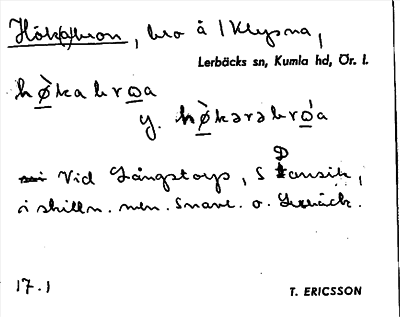 Hök(a)bron, bro å / Klysna,
Lerbäcks sn, Kumla hd, Ör. l.
hø̀kabroa
y. hø̀kərəbróa
Vid Långstorp, S Dansik,
i skilln. men. Snavl. o. Lerbäck.
17.1
T. ERICSSON